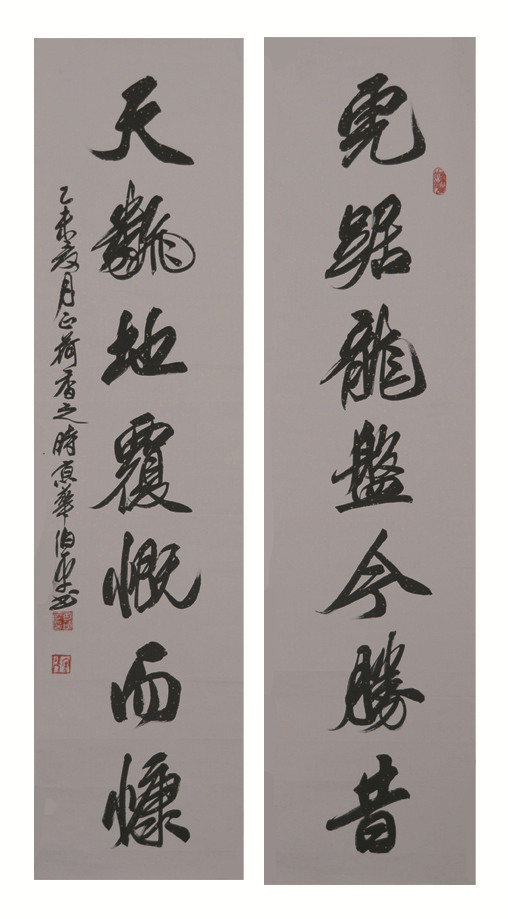 虎踞龍盤今勝昔
天翻地覆慨而慷
乙未夏月正荷香之時京華伯平書